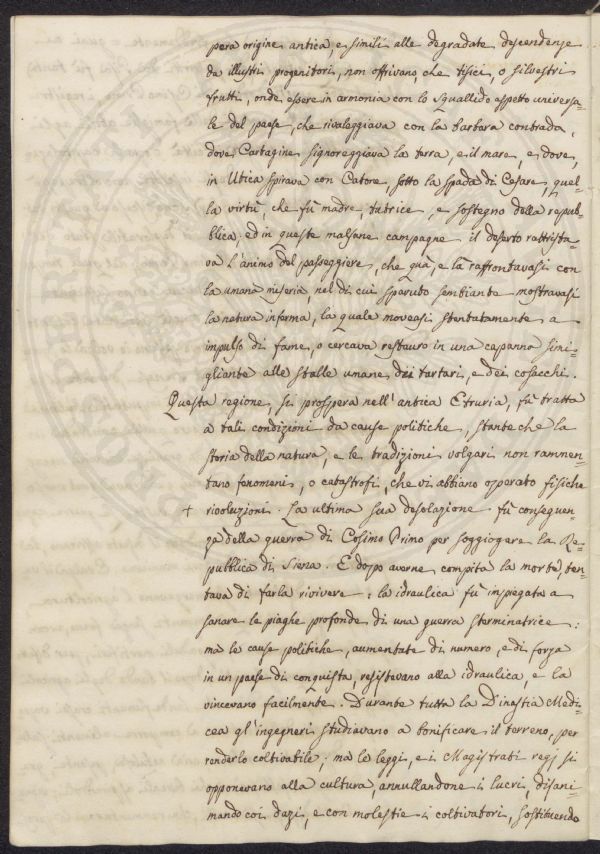 pera origine antica, e simili alle degradate descendenze
da illustri progenitori, non offrivano, che tisici, o silvestri
frutti, onde essere in armonia con lo squallido aspetto universa-
le del paese, che rivaleggiava con la barbara contrada,
dove Cartagine signoreggiava la terra, e il mare, e dove,
in Utica spirava con Catone, sotto la spada di Cesare, quel-
la virtù, che fù madre, tutrice, e sostegno della repub-
blica: ed in queste malsane campagne il deserto rattrista-
va l'animo del passeggiere, che quà, e là raffrontavasi con
la umana miseria, nel di cui sparuto sembiante mostravasi
la natura inferma, la quale moveasi stentatamente a
impulso di fame, o cercava restauro in una capanna simi-
gliante alle stalle umane dei tartari, e dei cosacchi.
Questa regione, sì prospera nell'antica Etruria, fù tratta
a tali condizioni da cause politiche, stante che la
storia della natura, e le tradizioni volgari non rammen-
tano fenomeni, o catastrofi, che vi abbiano operato fisiche
+ rivoluzioni. La ultima sua desolazione fù conseguen-
za della guerra di Cosimo Primo per soggiogare la Re-
pubblica di Siena. E dopo averne compita la morte, ten-
tava di farla rivivere: la idraulica fù impiegata a
sanare le piaghe profonde di una guerra sterminatrice:
ma le cause politiche, aumentate di numero, e di forza
in un paese di conquista, resistevano alla idraulica, e la
vincevano facilmente. Durante tutta la Dinastia Medi-
cea gl'ingegneri studiavano a bonificare il terreno, per
renderlo coltivabile; ma le leggi, e i Magistrati regj si
opponevano alla cultura, annullandone i lucri, disani-
mando coi dazj, e con molestie i coltivatori, sostituendo